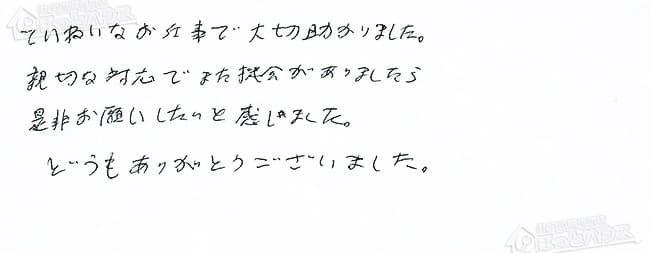 ていねいなお仕事で大切助かりました。
親切な対応でまた機会がありましたら
是非お願いしたいと感じました。
どうもありがとうございました。